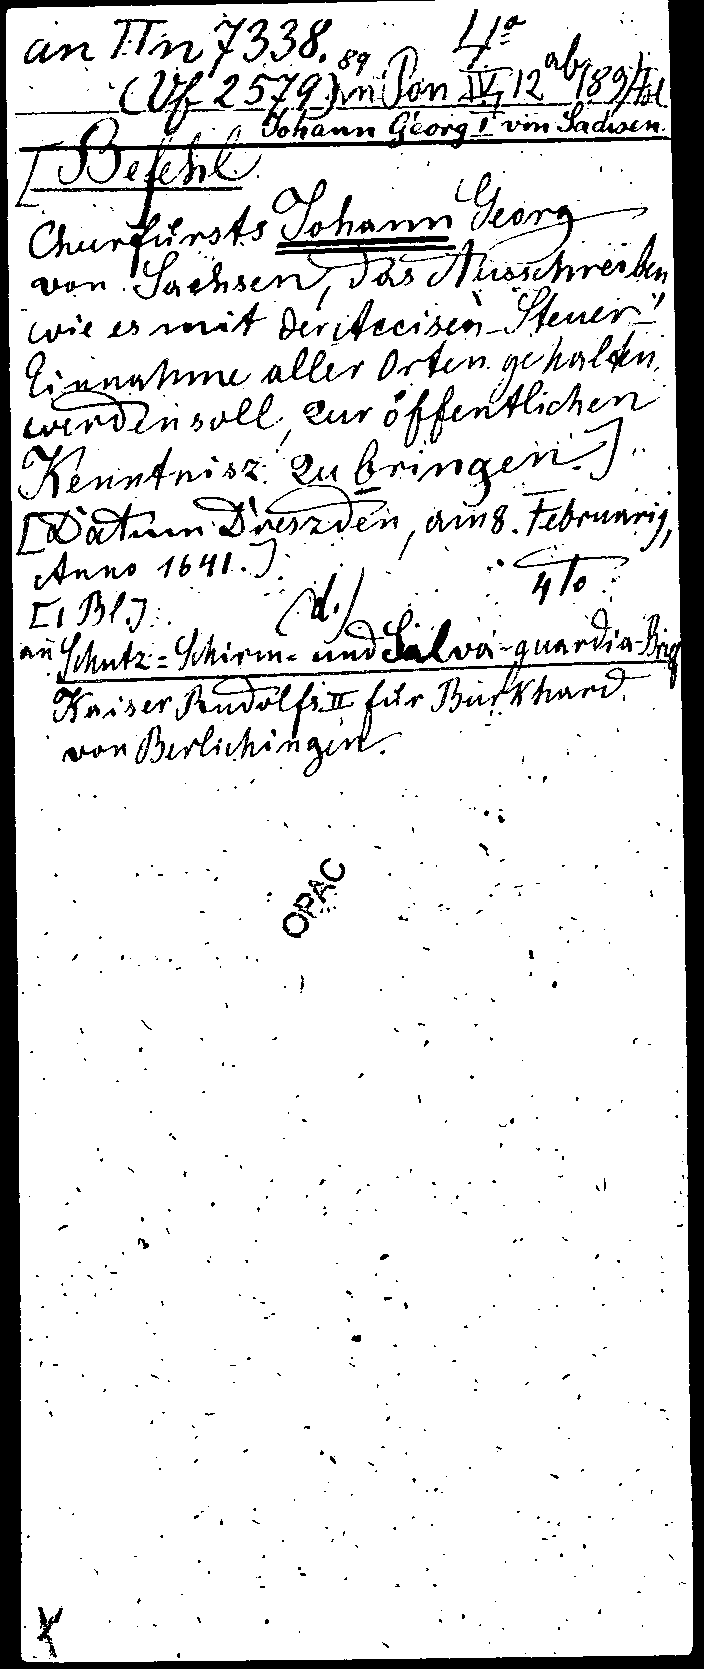 an IIn 7338. 4°
(Vf 2579) in Pon IV, 12 ab, 89
Johann Georg I von Sachsen.
[Befehl
Churfürsts Johann Georg
von Sachsen, das Ausschreiben
wie es mit der Accisen-Steuer-
Einnahme aller Orten gehalten
werden soll, zur öffentlichen
Kenntnisz zu bringen.]
[Datum Dreszden, am 8. Februarij,
Anno 1641.]
[1 Bl.] (d.) 4to
an Schutz- Schirm- und Salva-guardia-Brief
Kaiser Rudolfs II für Burkhard
von Berlichingen.
OPAC